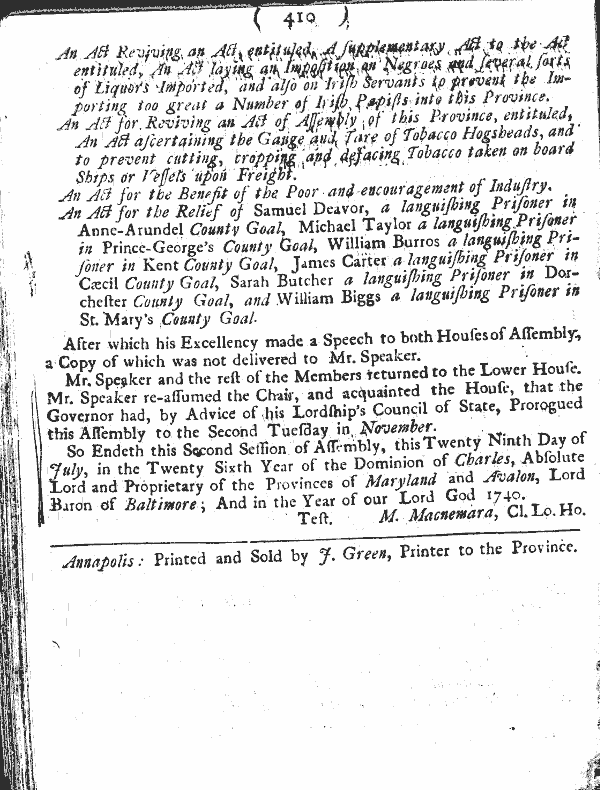 ( 410 )
An Act Reviving an Act, entituled, A ſupplementary Act to the Act
entituled, An Act laying an Impoſition on Negroes and ſeveral ſorts
of Liquors Imported, and alſo on Iriſh Servants to prevent the Im-
porting too great a Number of Iriſh Papiſts into this Province.
An Act for Reviving an Act of Aſſembly of this Province, entituled,
An Act aſcertaining the Gauge and Tare of Tobacco Hogsheads, and
to prevent cutting, cropping and defacing Tobacco taken on board
Ships or Veſſels upon Freight.
An Act for the Benefit of the Poor and encouragement of Induſtry.
An Act for the Relief of Samuel Deavor, a languiſhing Priſoner in
Anne-Arundel County Goal, Michael Taylor a languiſhing Priſoner
in Prince-George's County Goal, William Burros a languiſhing Pri-
ſoner in Kent County Goal, James Carter a languiſhing Priſoner in
Cæcil County Goal, Sarah Butcher a languiſhing Priſoner in Dor-
cheſter County Goal, and William Biggs a languiſhing Priſoner in
St. Mary's County Goal.
After which his Excellency made a Speech to both Houſes of Aſſembly,
a Copy of which was not delivered to Mr. Speaker.
Mr. Speaker and the reſt of the Members returned to the Lower Houſe.
Mr. Speaker re-aſſumed the Chair, and acquainted the Houſe, that the
Governor had, by Advice of his Lordſhip's Council of State, Prorogued
this Aſſembly to the Second Tueſday in November.
So Endeth this Second Seſſion of Aſſembly, this Twenty Ninth Day of
July, in the Twenty Sixth Year of the Dominion of Charles, Abſolute
Lord and Proprietary of the Provinces of Maryland and Avalon, Lord
Baron of Baltimore; And in the Year of our Lord God 1740.
Teſt. M. Macnemara, Cl. Lo. Ho.
Annapolis: Printed and Sold by J. Green, Printer to the Province.